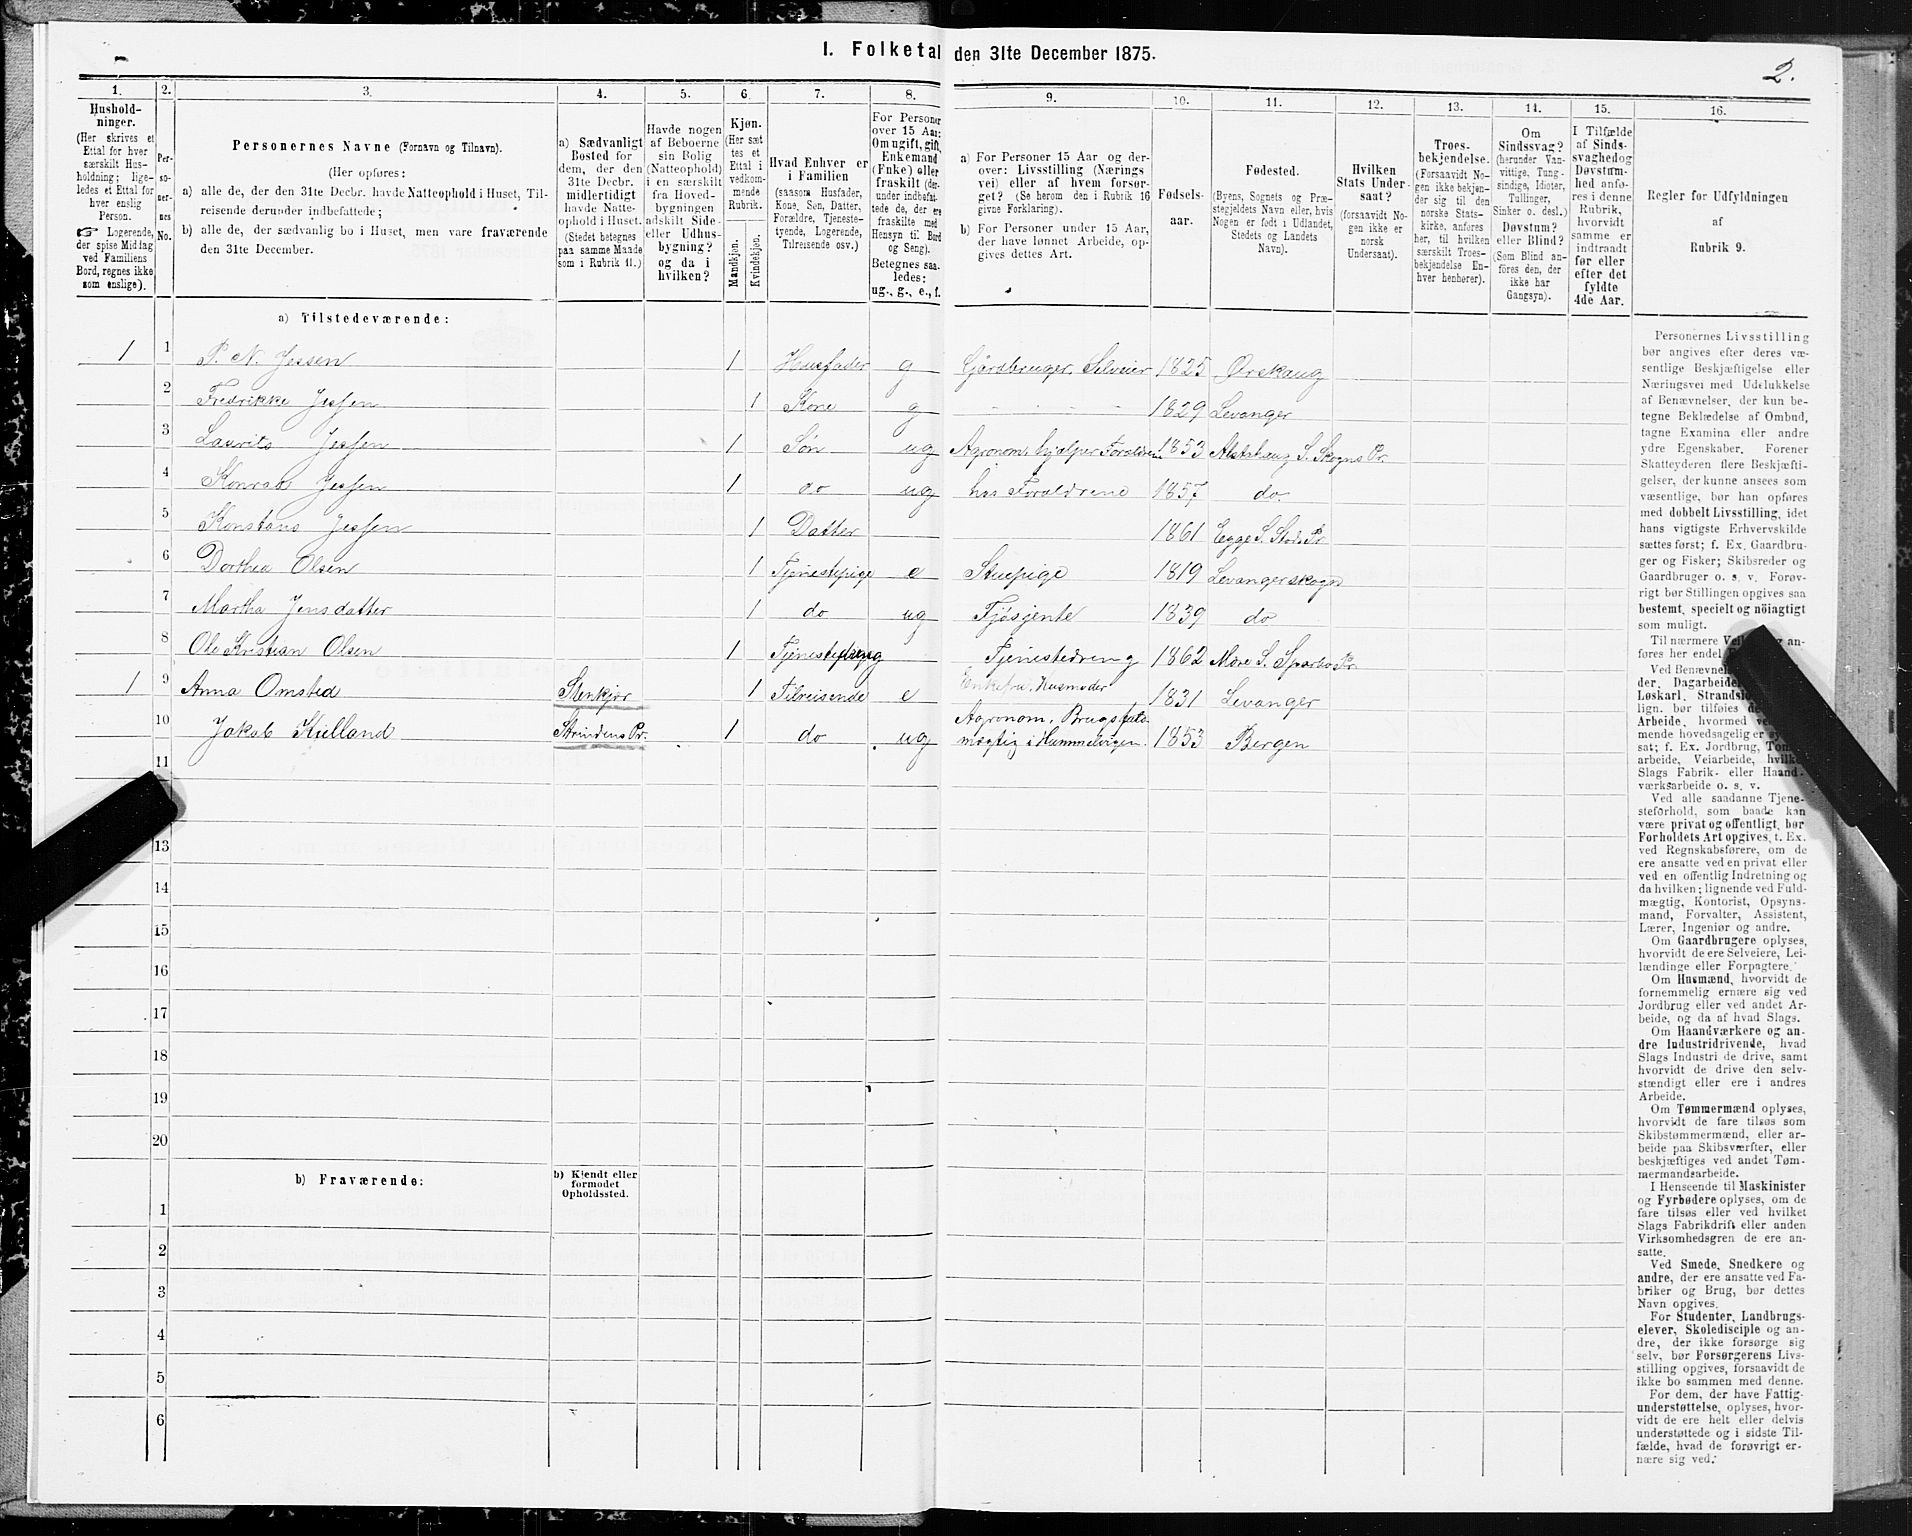 I. Folketal den 31te December 1875.
2.
1. 2. 3. 4. 5. 6. 7. 8. 9. 10. 11. 12. 13. 14. 15. 16.
Hushold-
ninger.
(Her skrives et
Ettal for hver
særskilt Hus-
holdning; lige-
ledes et Ettal for
hver enslig
Person.
☞ Logerende,
der spise Middag
ved Familiens
Bord, regnes ikke
som enslige).
Per-
so-
ner-
nes
No.
Personernes Navne (Fornavn og Tilnavn).
(Her opføres:
a) alle de, der den 31te Decbr. havde Natteophold i Huset, Til-
reisende derunder indbefattede;
b) alle de, der sædvanlig bo i Huset, men vare fraværende
den 31te December.
a) Sædvanligt
Bosted for
dem, der den
31te Decbr.
midlertidigt
havde Natte-
ophold i Huset.
(Stedet betegnes
paa samme Maade
som i Rubrik 11.)
Havde nogen
af Beboerne
sin Bolig
(Natteophold)
i en særskilt
fra Hoved-
bygningen
adskilt Side-
eller Udhus-
bygning?
og da i
hvilken?
Kjøn.
(Her sæt
tes et
Ettal i
vedkom-
mende
Rubrik.
Mandkjøn.
Kvindekjøn.
Hvad Enhver er
i Familien
(saasom Husfader,
Kone, Søn, Datter,
Forældre, Tjeneste-
tyende, Logerende,
Tilreisende osv.)
For Personer
over 15 Aar:
Om ugift, gift,
Enkemand
(Enke) eller
fraskilt (der-
under indbefat-
tede de, der ere
fraskilte med
Hensyn til Bord
og Seng).
Betegnes saa-
ledes:
ug., g., e., f.
a) For Personer 15 Aar og der-
over: Livsstilling (Nærings
vei) eller af hvem forsør-
get? (Se herom den i Rubrik 16
givne Forklaring).
b) For Personer under 15 Aar,
der have lønnet Arbeide, op-
gives dettes Art.
Fødsels-
aar.
Fødested.
(Byens, Sognets og Præ-
stegjeldets Navn eller, hvis
Nogen er født i Udlandet,
Stedets og Landets
Navn).
Hvilken
Stats Under-
saat?
(forsaavidt No-
gen ikke er
norsk
Undersaat).
Troes-
bekjendelse.
(Forsaavidt No-
gen ikke bekjen-
der sig til den
norske Stats-
kirke, anføres
her, til hvilken
særskilt Troes-
bekjendelse En-
hver henhører).
Om
Sindssvag?
(herunder Van-
vittige, Tung-
sindige, Idioter,
Tullinger,
Sinker o. desl.)
Døvstum?
eller Blind?
(Som Blind an-
føres den, der
ikke har
Gangsyn).
I Tilfælde
af Sinds-
svaghed og
Døvstum-
hed anfø-
res i denne
Rubrik,
hvorvidt
samme er
indtraadt
før eller
efter det
fyldte
4de Aar.
Regler for Udfyldningen
af
Rubrik 9.
a) Tilstedeværende:
1 1 P. N. Jessen 1 Husfader g Gårdbruger, Selveier 1825 Ørskaug
2 Fredrikke Jessen 1 Kone g 1829 Levanger
3 Laurits Jessen 1 Søn ug Agronom, hjælper Forældrene 1853 Alstahaug S. Skogns Pr.
4 Konrad Jessen 1 do ug hos Forældrene 1857 do.
5 Konstans Jessen 1 Datter 1861 Egge S. Stods Pr
6 Dorthea Olsen 1 Tjenestepige e Stuepige 1819 Levangerskogn
7 Martha Jensdatter 1 do ug Fjøsjente 1839 do
8 Ole Kristian Olsen 1 Tjenestedreng Tjenestedreng 1862 Mære S. Sparbo Pr.
1 9 Anna Omsted Stenkjær 1 Tilreisende e Enkefru, Husmoder 1831 Levanger
10 Jakob Kielland Strindens Pr. 1 do ug Agronom, Brugsfuld-
mægtig i Hummelvigen. 1853 Bergen
11
13
14
15
16
17
18
19
20
b) Fraværende:
b) Kjendt eller
formodet
Opholdssted.
1
2
3
4
5
6
Personernes Livsstilling
bør angives efter deres væ-
sentlige Beskjæftigelse eller
Næringsvei med Udelukkelse
af Benævnelser, der kun be-
tegne Beklædelse af Ombud,
tagne Examina eller andre
ydre Egenskaber. Forener
Skatteyderen flere Beskjæfti-
gelser, der kunne ansees som
væsentlige, bør han opføres
med dobbelt Livsstilling, idet
hans vigtigste Erhvervskilde
sættes først; f. Ex. Gaardbru-
ger og Fisker; Skibsreder og
Gaardbruger o. s. v. Forøv-
rigt bør Stillingen opgives saa
bestemt, specielt og nöiagtigt
som muligt.
Til nærmere an-
føres her
Ved Benævnel
der, Dagarbeide
Løskarl, Strandsi
lign. bør tilføies
Arbeide, hvormed
mende hovedsagelig er
sat; f. Ex. Jordbrug, Tom
arbeide, Veiarbeide, hvilke
Slags Fabrik- eller Haand-
værksarbeide o. s. v.
Ved alle saadanne Tjene-
steforhold, som baade kan
være privat og offentligt, bør
Forholdets Art opgives, t. Ex.
ved Regnskabsførere, om de
ere ansatte ved en privat eller
ved en offentlig Indretning og
da hvilken; lignende ved Fuld-
mægtig, Kontorist, Opsyns-
mand, Forvalter, Assistent,
Lærer, Ingeniør og andre.
Om Gaardbrugere oplyses,
hvorvidt de ere Selveiere, Lei-
lændinge eller Forpagtere.
Om Husmænd, hvorvidt de
fornemmelig ernære sig ved
Jordbrug eller ved andet Ar-
beide, og da af hvad Slags.
Om Haandværkere og an-
dre Industridrivende, hvad
Slags Industri de drive, samt
hvorvidt de drive den selv-
stændigt eller ere i andres
Arbeide.
Om Tømmermænd oplyses,
hvorvidt de fare tilsøs som
Skibstømmermænd, eller ar-
beide paa Skibsværfter, eller
beskjæftiges ved andet Tøm-
mermandsarbeide.
I Henseende til Maskinister
og Fyrbødere oplyses, om de
fare tilsøs eller ved hvilket
Slags Fabrikdrift eller anden
Virksomhedsgren de ere an-
satte.
Ved Smede, Snedkere og
andre, der ere ansatte ved Fa-
briker og Brug, bør dettes
Navn opgives.
For Studenter, Landbrugs-
elever, Skoledisciple og an-
dre, der ikke forsørge sig
selv, bør Forsørgerens Livs-
stilling opgives, forsaavidt de
ikke bo sammen med denne.
For dem, der have Fattig-
understøttelse, oplyses, hvor-
vidt de ere helt eller delvis
understøttede og i sidste Til-
fælde, hvad de forøvrigt er-
nære sig ved.